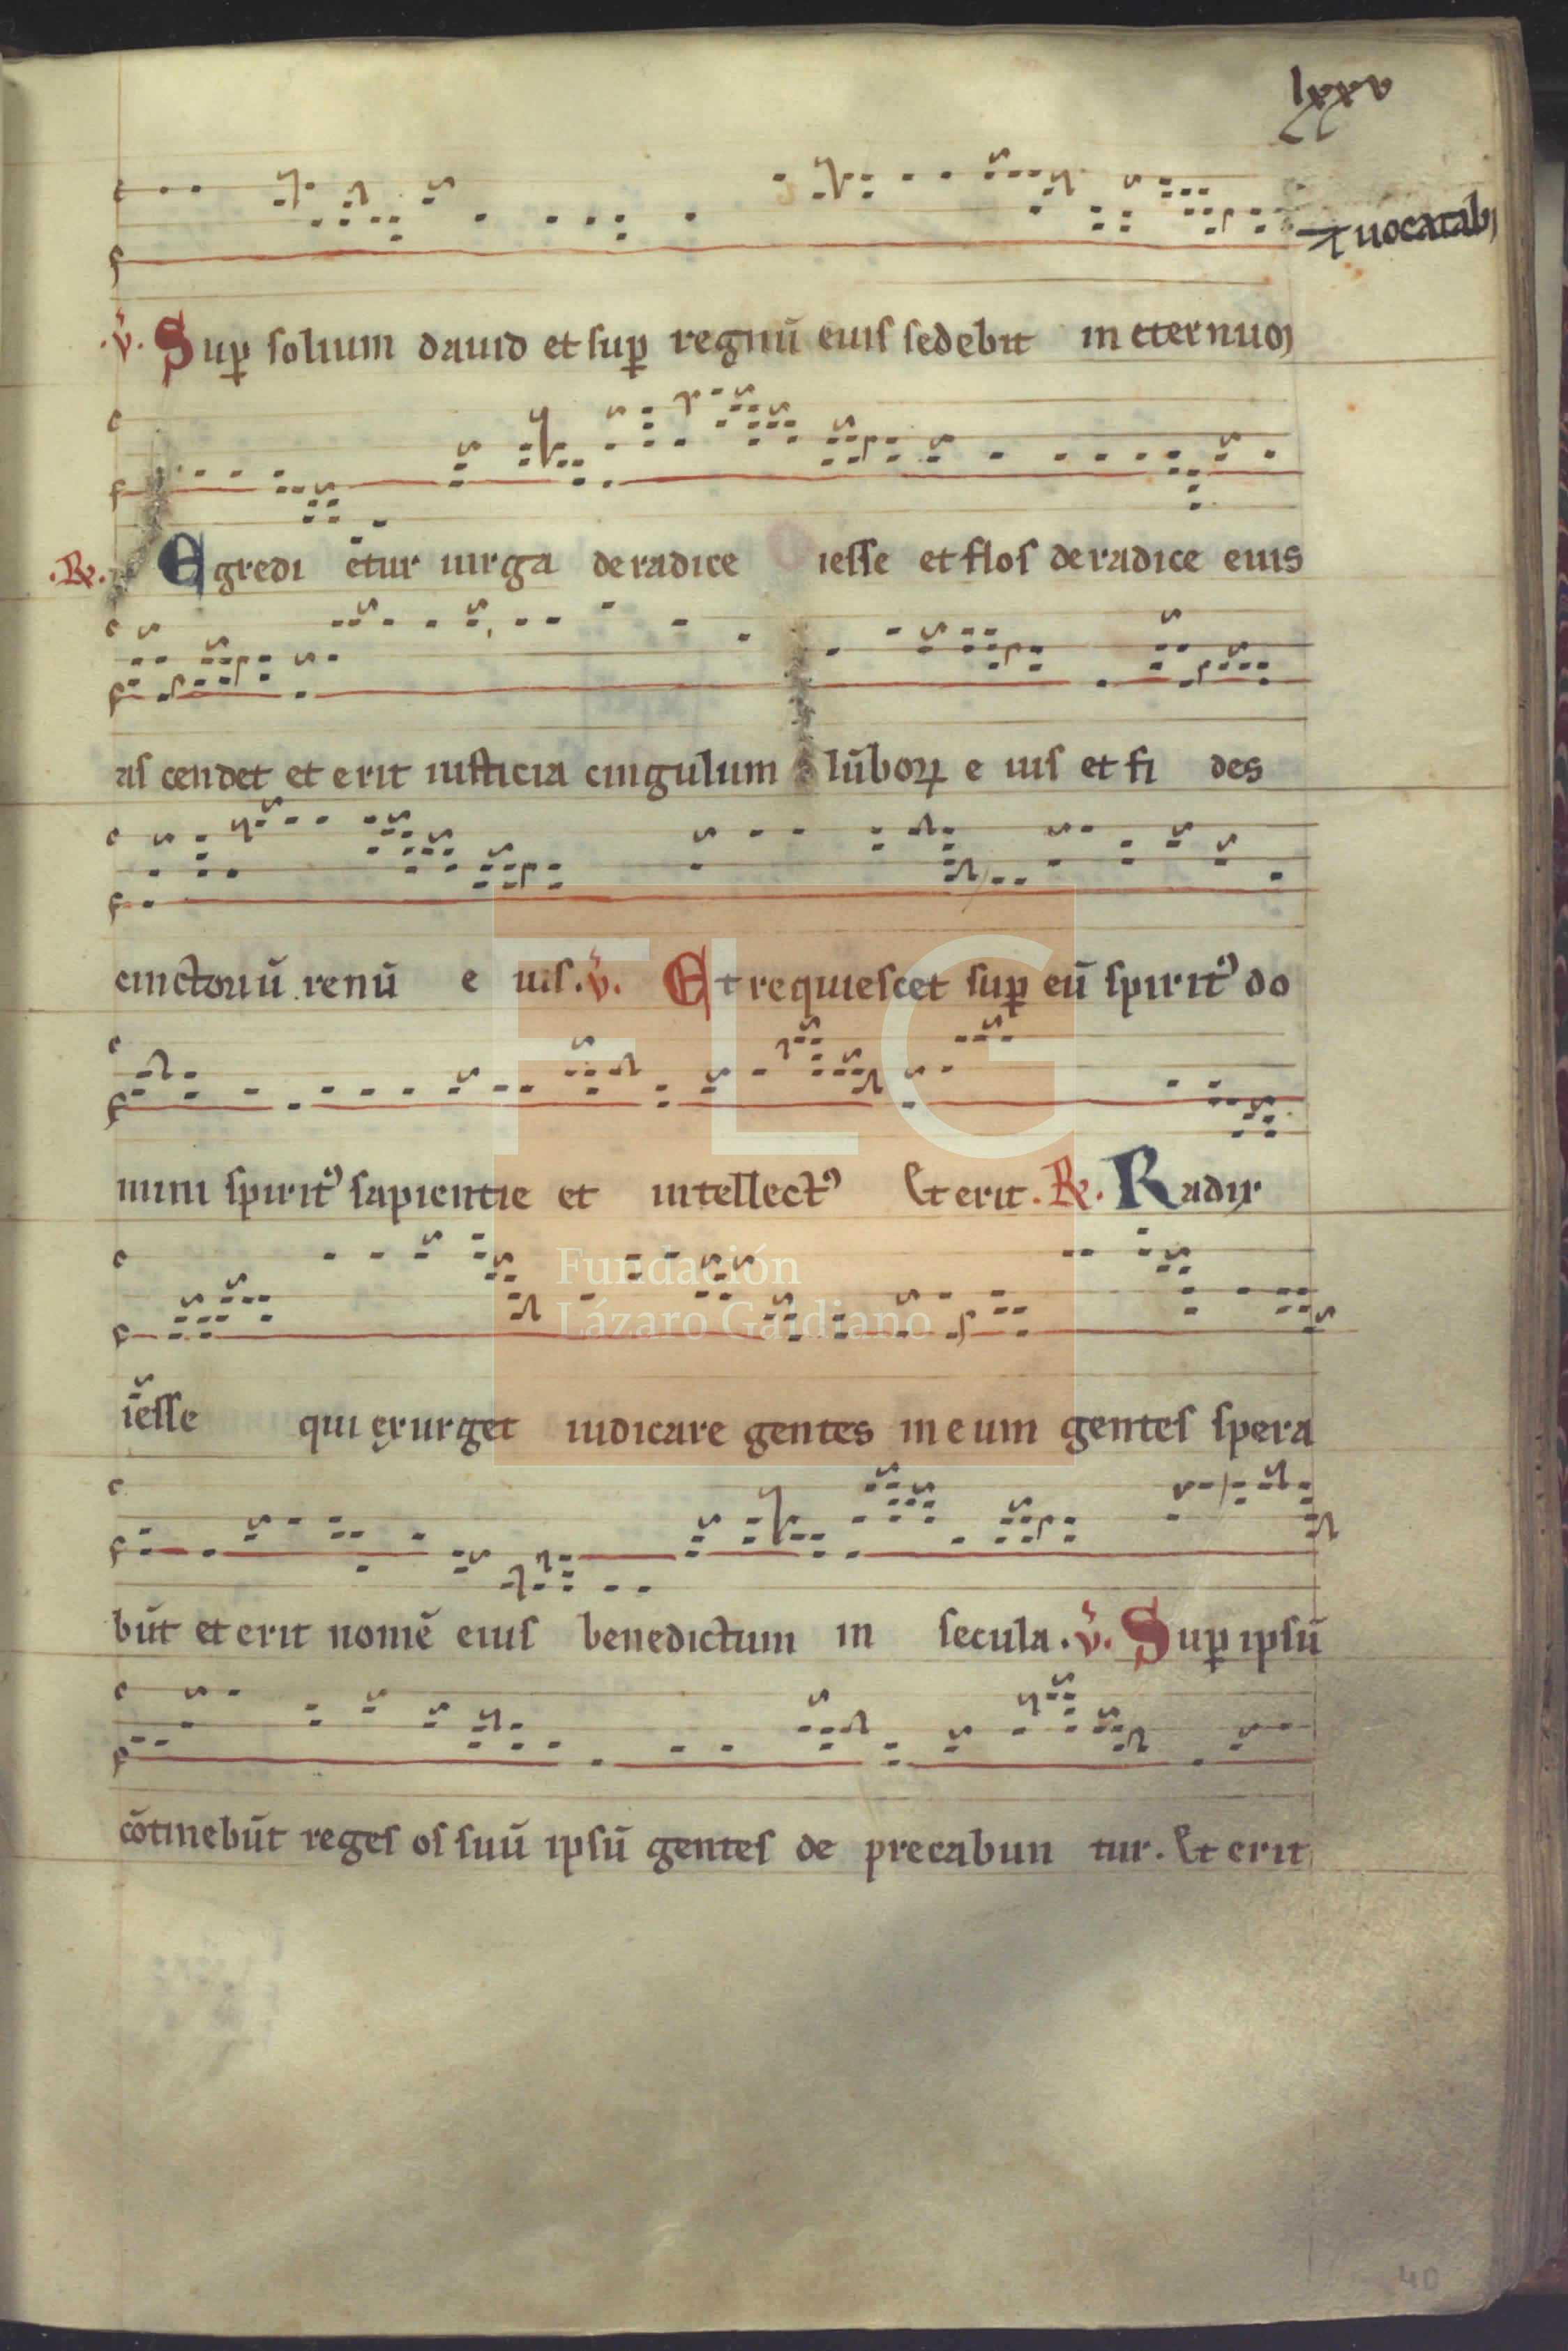 lxxv
⁊ uocatab
.v̊. Sup̱ solium dauid et sup̱ regnū eius sedebit in eternum
.R̷. Egredi etur uirga de radice iesse et flos de radice eius
as cendet et erit iusticia cingulum lūboꝝ e ius et fi des
cinctoriū renū e uis. v̊. Et requiescet sup̱ eū spirit᾿ do
mini spirit᾿ sapientie et intellect᾿ Et erit. R̷. Radix
iesse qui exurget iudicare gentes in eum gentes spera
būt et erit nomē eius benedictum in secula. v̊. Sup̱ ipsū
cōtinebūt reges os suū ipsū gentes de precabun tur. Et erit
FLG
Fundación
Lázaro Galdiano
40